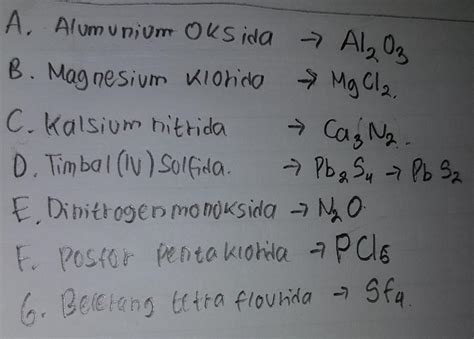 A. Alumunium Oksida → Al₂O₃
B. Magnesium klorida → MgCl₂.
C. Kalsium nitrida → Ca₃N₂.
D. Timbal (IV) Solfida. → Pb₂S₄ → PbS₂
E. Dinitrogen monoksida → N₂O
F. Posfor pentaklorida → PCl₅
G. Belerang tetra flourida → Sf₄.